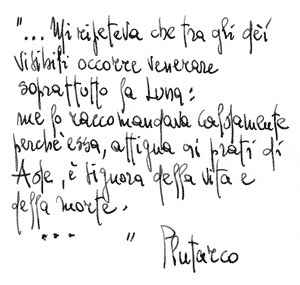 "... Mi ripeteva che tra gli dèi
visibili occorre venerare
soprattutto la Luna:
me lo raccomandava caldamente
perchè essa, attigua ai prati di
Ade, è signora della vita e
della morte.
... "
Plutarco